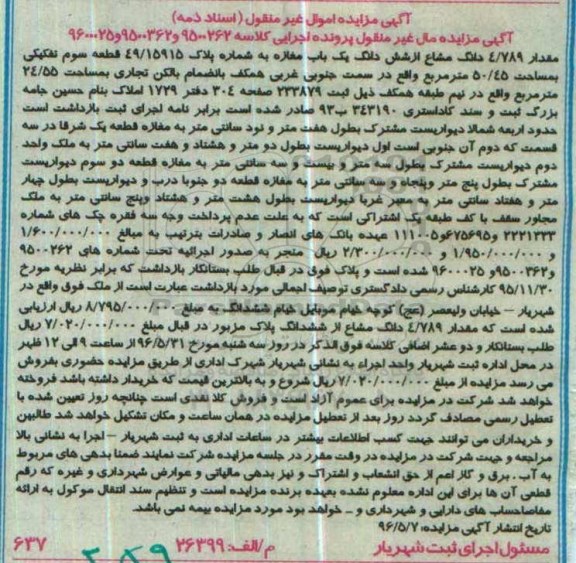 آگهی مزایده اموال غیر منقول (اسناد ذمه)
آگهی مزایده مال غیر منقول پرونده اجرایی کلاسه ۹۵۰۰۲۶۲ و۹۵۰۰۳۶۲و۹۶۰۰۰۲۵
مقدار ۴/۷۸۹ دانگ مشاع ازشش دانگ یک باب مغازه به شماره پلاک ۴۹/۱۵۹۱۵ قطعه سوم تفکیکی
بمساحت ۵۰/۴۵ مترمربع واقع در سمت جنوبی غربی همکف بانضمام بالکن تجاری بمساحت ۲۴/۵۵
مترمربع واقع در نیم طبقه همکف ذیل ثبت ۲۳۳۸۷۹ صفحه ۳۰۴ دفتر ۱۷۲۹ املاک بنام حسین جامه
بزرگ ثبت و سند کاداستری ۳۴۳۱۹۰ ب۹۳ صادر شده است برابر نامه اجرای ثبت بازداشت است
حدود اربعه شمالا دیواریست مشترک بطول هفت متر و نود سانتی متر به مغازه قطعه یک شرقا در سه
قسمت که دوم آن جنوبی است اول دیواریست بطول دو متر و هشتاد و هفت سانتی متر به ملک واحد
دوم دیواریست مشترک بطول سه متر و بیست و سه سانتی متر به مغازه قطعه دو سوم دیواریست
مشترک بطول پنج متر وپنجاه و سه سانتی متر به مغازه قطعه دو جنوبا درب و دیواریست بطول چهار
متر و هفتاد سانتی متر به معبر غربا دیواریست بطول هشت متر و هشتاد وپنج سانتی متر به ملک
مجاور سقف با کف طبقه یک اشتراکی است که به علت عدم پرداخت وجه سه فقره چک های شماره
۲۲۲۱۳۳۳ و۶۷۵۶۹۵و۱۱۱۰۰۵ عهده بانک های انصار و صادرات بترتیب به مبالغ ۱/۶۰۰/۰۰۰/۰۰۰
و ۱/۹۵۰/۰۰۰/۰۰۰ و ۲/۳۰۰/۰۰۰/۰۰۰ ریال متجر به صدور اجرائیه تحت شماره های ۹۵۰۰۲۶۲
و۹۵۰۰۳۶۲ و۹۶۰۰۰۲۵ شده است و پلاک فوق در قبال طلب بستانکار بازداشت که برابر نظریه مورخ
۹۵/۱۱/۳۰ کارشناس رسمی دادگستری توصیف اجمالی مورد بازداشت عبارت است از ملک فوق واقع در
شهریار – خیابان ولیعصر (عج) کوچه خیام موبایل خیام ششدانگ به مبلغ ۸/۷۹۵/۰۰۰/۰۰۰ ریال ارزیابی
شده است که مقدار ۴/۷۸۹ دانگ مشاع از ششدانگ پلاک مزبور در قبال مبلغ ۷/۰۲۰/۰۰۰/۰۰۰ ریال
طلب بستانکار و دو عشر اضافی کلاسه فوق الذکر در روز سه شنبه مورخ ۹۶/۵/۳۱ از ساعت ۹ الی ۱۲ ظهر
در محل اداره ثبت شهریار واحد اجراء به نشانی شهریار شهرک اداری از طریق مزایده حضوری بفروش
می رسد مزایده از مبلغ ۷/۰۲۰/۰۰۰/۰۰۰ ریال شروع و به بالاترین قیمت که خریدار داشته باشد فروخته
خواهد شد شرکت در مزایده برای عموم آزاد است و فروش کلا نقدی است چنانچه روز تعیین شده با
تعطیل رسمی مصادف گردد روز بعد از تعطیل مزایده در همان ساعت و مکان تشکیل خواهد شد طالبین
و خریداران می توانند جهت کسب اطلاعات بیشتر در ساعات اداری به ثبت شهریار – اجرا به نشانی بالا
مراجعه و جهت شرکت در مزایده در وقت مقرر در جلسه مزایده شرکت نمایند ضمنا بدهی های مربوط
به آب . برق و گاز اعم از حق انشعاب و اشتراک و نیز بدهی مالیاتی و عوارض شهرداری و غیره که رقم
قطعی آن ها برای این اداره معلوم نشده بعهده برنده مزایده است و تنظیم سند انتقال موکول به ارائه
مفاصاحساب های دارایی و شهرداری و – خواهد بود مورد مزایده بیمه نمی باشد.
تاریخ انتشار آگهی مزایده: ۹۶/۵/۷
مسئول اجرای ثبت شهریار م/الف: ۲۶۳۹۹ ۶۳۷